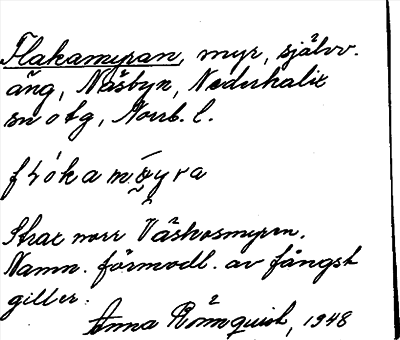 Flakamyran, myr, självv.
äng, Näsbyn, Nederkalix
sn o tg, Norrb. l.
Strax norr Väskosmyren.
Namn. förmodl. av fångst
giller.
Anna Rönnquist, 1948